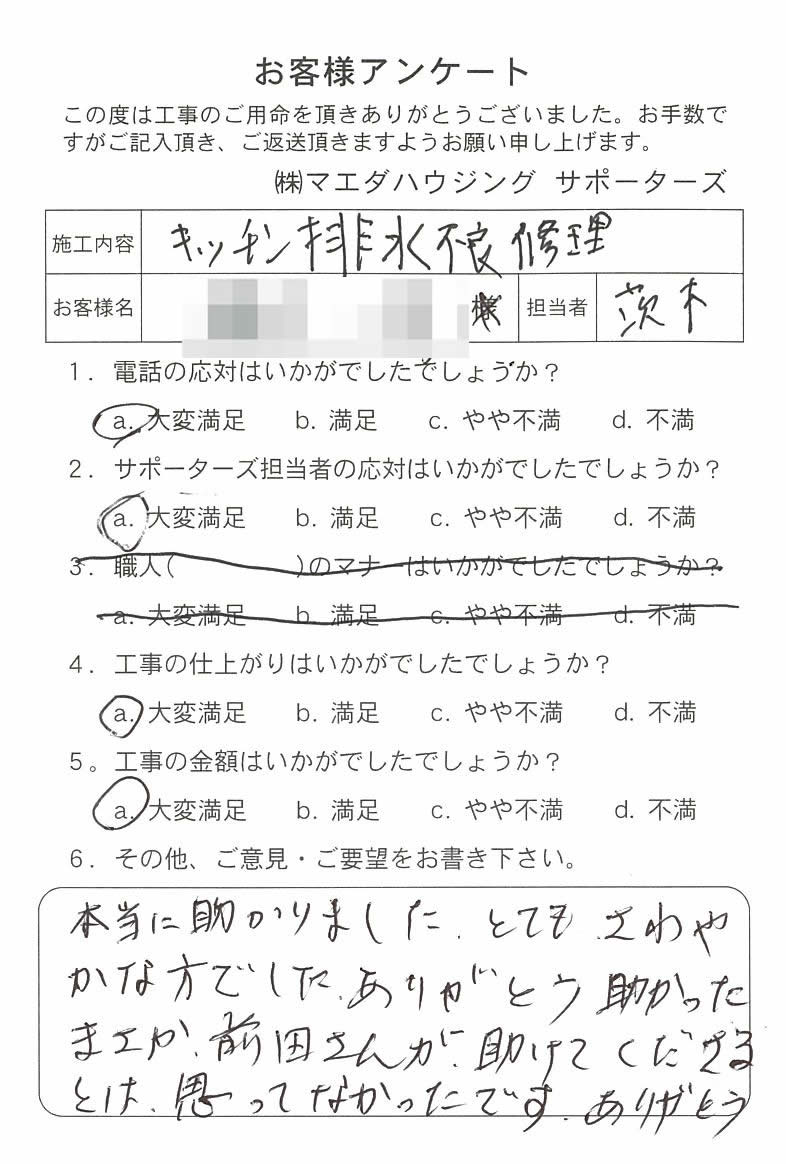 お客様アンケート
この度は工事のご用命を頂きありがとうございました。お手数で
すがご記入頂き、ご返送頂きますようお願い申し上げます。
㈱マエダハウジング サポーターズ
施工内容 キッチン排水不良修理
お客様名 様 担当者 茨木
1. 電話の応対はいかがでしたでしょうか?
a. 大変満足 b. 満足 c. やや不満 d. 不満
2. サポーターズ担当者の応対はいかがでしたでしょうか?
a. 大変満足 b. 満足 c. やや不満 d. 不満
3. 職人( )のマナーはいかがでしたでしょうか?
a. 大変満足 b. 満足 c. やや不満 d. 不満
4. 工事の仕上がりはいかがでしたでしょうか?
a. 大変満足 b. 満足 c. やや不満 d. 不満
5。工事の金額はいかがでしたでしょうか?
a. 大変満足 b. 満足 c. やや不満 d. 不満
6. その他、ご意見・ご要望をお書き下さい。
本当に助かりました、とてもさわや
かな方でした、ありがとう 助かった
まさか、前田さんが、助けてくださる
とは、思ってなかったです、ありがとう